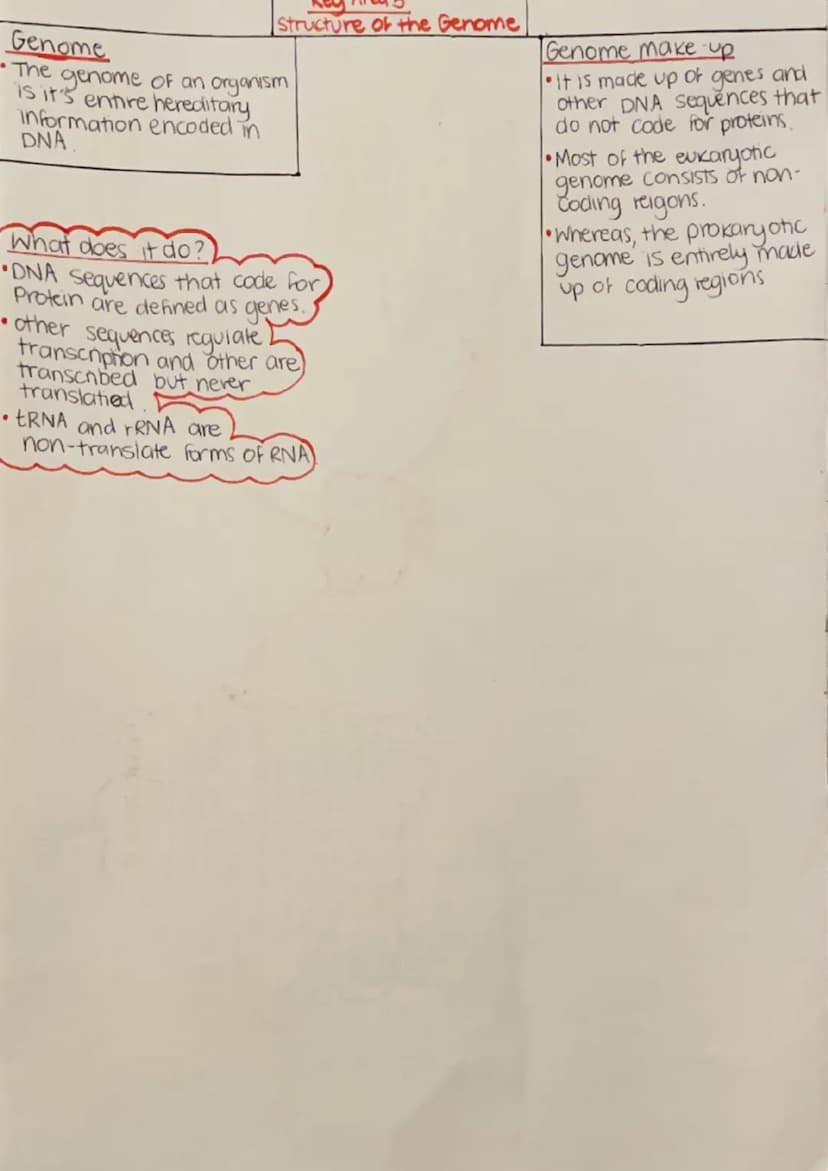 Key Area 5
Structure of the Genome
Genome
• The genome of an organism
is it's entire hereditary
information encoded in
DNA.
What does it do?
• DNA sequences that code for
Protein are defined as genes.
• other sequences regulate
transcription and other are
transcribed but never
translatied.
• tRNA and rRNA are
non-translate forms of RNA
Genome make-up
• it is made up of genes and
other DNA sequences that
do not code for proteins.
• Most of the eukaryotic
genome consists of non-
coding reigons.
• Whereas, the prokaryotic
genome is entirely made
up of coding regions